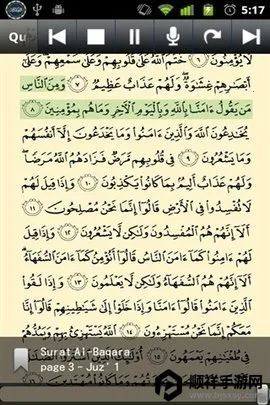 5:17
Qu
لَا يُؤْمِنُونَ ٦ خَتَمَ اللَّهُ عَلَىٰ قُلُوبِهِمْ وَعَلَىٰ سَمْعِهِمْ وَعَلَىٰ
أَبْصَارِهِمْ غِشَاوَةٌ وَلَهُمْ عَذَابٌ عَظِيمٌ ٧ وَمِنَ النَّاسِ
مَن يَقُولُ آمَنَّا بِاللَّهِ وَبِالْيَوْمِ الْآخِرِ وَمَا هُم بِمُؤْمِنِينَ ٨
يُخَادِعُونَ اللَّهَ وَالَّذِينَ آمَنُوا وَمَا يَخْدَعُونَ إِلَّا أَنفُسَهُمْ
وَمَا يَشْعُرُونَ ٩ فِي قُلُوبِهِم مَّرَضٌ فَزَادَهُمُ اللَّهُ مَرَضًا
وَلَهُمْ عَذَابٌ أَلِيمٌ بِمَا كَانُوا يَكْذِبُونَ ١٠ وَإِذَا قِيلَ لَهُمْ
لَا تُفْسِدُوا فِي الْأَرْضِ قَالُوا إِنَّمَا نَحْنُ مُصْلِحُونَ ١١
أَلَا إِنَّهُمْ هُمُ الْمُفْسِدُونَ وَلَٰكِن لَّا يَشْعُرُونَ ١٢ وَإِذَا قِيلَ
لَهُمْ آمِنُوا كَمَا آمَنَ النَّاسُ قَالُوا أَنُؤْمِنُ كَمَا آمَنَ السُّفَهَاءُ
أَلَا إِنَّهُمْ هُمُ السُّفَهَاءُ وَلَٰكِن لَّا يَعْلَمُونَ ١٣ وَإِذَا لَقُوا
الَّذِينَ آمَنُوا قَالُوا آمَنَّا وَإِذَا خَلَوْا إِلَىٰ شَيَاطِينِهِمْ قَالُوا إِنَّا
مَعَكُمْ إِنَّمَا نَحْنُ مُسْتَهْزِئُونَ ١٤ اللَّهُ يَسْتَهْزِئُ بِهِمْ وَيَمُدُّهُمْ
فِي طُغْيَانِهِمْ يَعْمَهُونَ ١٥
Surat Al-Baqara
page 3 - Juz' 1
顺祥手游网